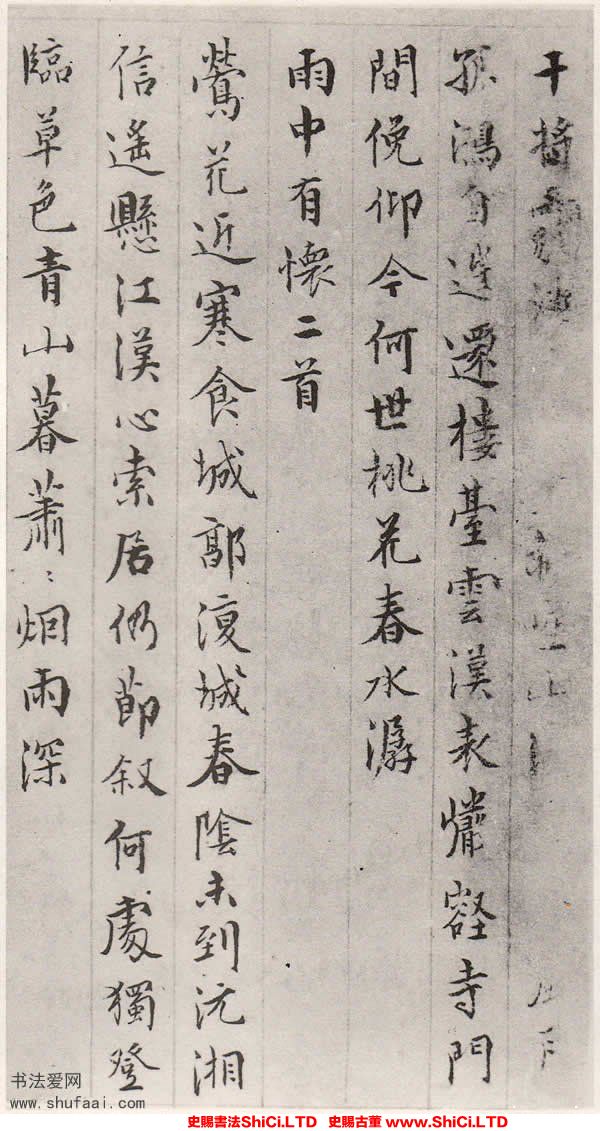 干
孤鴻自還樓臺雲漢表寺門
間俛仰今何世桃花春水潺
雨中有懷二首
鶯花近寒食城郭復城春陰未到沅湘
信遙懸江漢心索居仍節叙何處獨登
臨草色青山暮蕭〻烟雨深
书法爱网
www.shufaai.com
史賜書法ShiCi.LTD 史賜古董 www.ShiCi.LTD